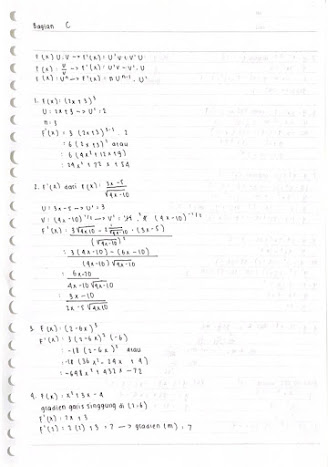 Bagian C
f(x) U.V → f'(x) = U'V + V'U
f(x) = U/V → f'(x) = U'V - V'.U
f(x) = Uⁿ → f'(x) = n Uⁿ⁻¹ . U'
1. f(x) = (2x + 3)³
U = 2x + 3 → U' = 2
n =
f'(x) = 3 (2x+3)³⁻¹ . 2
= 6 (2x+3)² atau
= 6 (4x² + 12x + 9)
= 24x² + 72 x + 54
2. f'(x) dari f(x) = 3x - 5 / √4x-10
U = 3x - 5 → U' = 3
V = (4x - 10)^1/2 → V' = (4x - 10)^-1/2
f'(x) = 3√4x-10 - . (3x-5)
(√4x-10)²
= 3 (4x - 10) - (6x - 10)
(4x - 10) √4x - 10
= 6x-20
4x-10 √4x-10
= 3x - 10
2x - 5 √4x10
3. f(x) = (2 - 6x)³
f'(x) = 3 (2-6x)² (-6)
= -18 (2-6x)² atau
= -18 (36x² - 24x + 4)
= -648x² + 432x - 72
4. f(x) = x² + 3x - 4
gradien garis singgung di (2,6)
f'(x) = 2x + 3
f'(2) = 2(2) + 3 = 7 → gradien (m) = 7